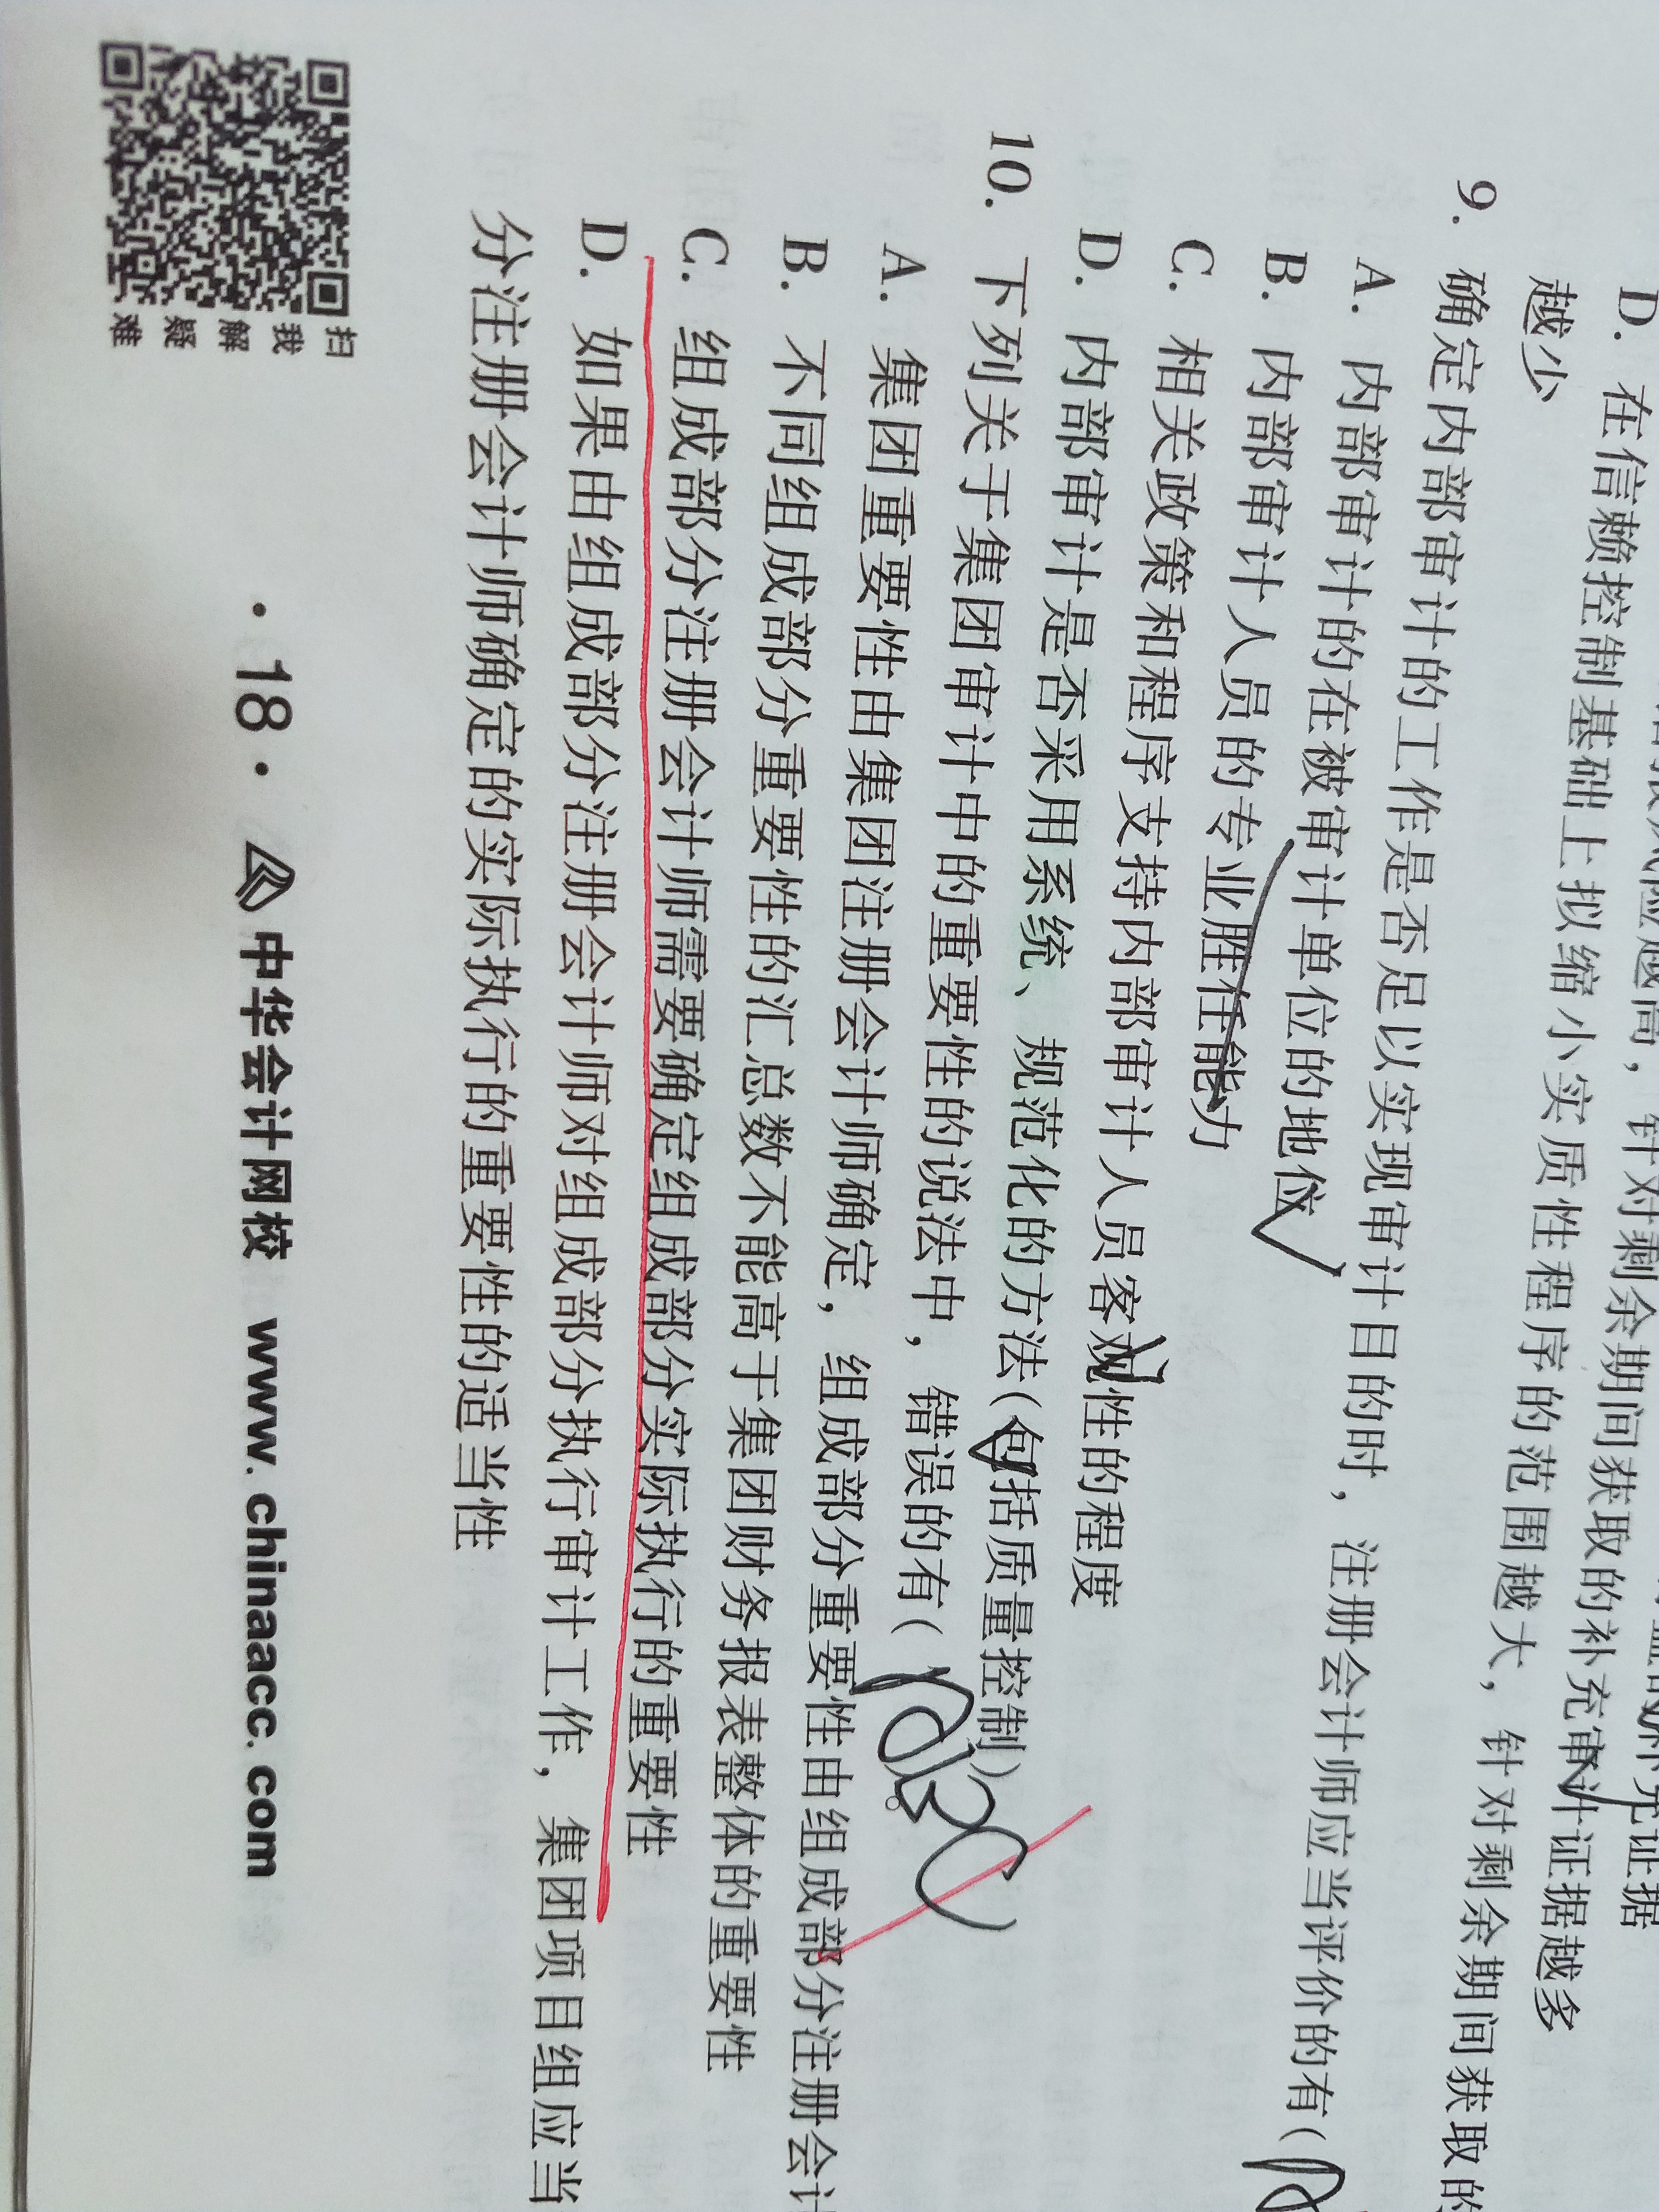 D. 在信赖控制基础上拟缩小实质性程序的范围越大，针对剩余期间获取的
越少
9. 确定内部审计的工作是否足以实现审计目的时，注册会计师应当评价的有（
A. 内部审计的在被审计单位的地位
B. 内部审计人员的专业胜任能力
C. 相关政策和程序支持内部审计人员客观性的程度
D. 内部审计是否采用系统、规范化的方法（包括质量控制）
10. 下列关于集团审计中的重要性的说法中，错误的有（
A. 集团重要性由集团注册会计师确定，组成部分重要性由组成部分注册会计
B. 不同组成部分重要性的汇总数不能高于集团财务报表整体的重要性
C. 组成部分注册会计师需要确定组成部分实际执行的重要性
D. 如果由组成部分注册会计师对组成部分执行审计工作，集团项目组应当
分注册会计师确定的实际执行的重要性的适当性
扫我解疑难
· 18 · 中华会计网校 www.chinaacc.com